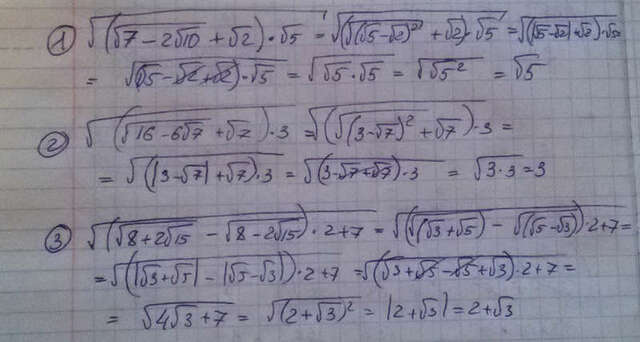 ① √((√(7 − 2√10) + √2) · √5) = √((√((√5 − √2)²) + √2) · √5) = √((|√5 − √2| + √2) · √5)
= √((√5 − √2 + √2) · √5) = √(√5 · √5) = √(√5²) = √5
② √((√(16 − 6√7) + √7) · 3) = √((√((3 − √7)²) + √7) · 3) =
= √((|3 − √7| + √7) · 3) = √((3 − √7 + √7) · 3) = √(3 · 3) = 3
③ √((√(8 + 2√15) − √(8 − 2√15)) · 2 + 7) = √((√(√3 + √5) − √(√5 − √3)) · 2 + 7) =
= √((|√3 + √5| − |√5 − √3|) · 2 + 7) = √((√3 + √5 − √5 + √3) · 2 + 7) =
= √(4√3 + 7) = √((2 + √3)²) = |2 + √3| = 2 + √3